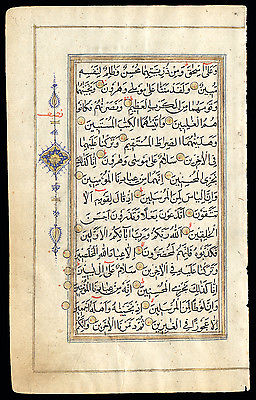 وَعَلَىٰ إِسْحٰقَ وَمِنْ ذُرِّيَّتِهِمَا مُحْسِنٌ وَظَالِمٌ لِنَفْسِهِ
مُبِينٌ وَلَقَدْ مَنَنَّا عَلَىٰ مُوسَىٰ وَهٰرُونَ وَنَجَّيْنٰهُمَا
وَقَوْمَهُمَا مِنَ الْكَرْبِ الْعَظِيمِ وَنَصَرْنٰهُمْ فَكَانُوا
هُمُ الْغٰلِبِينَ وَآتَيْنٰهُمَا الْكِتٰبَ الْمُسْتَبِينَ
وَهَدَيْنٰهُمَا الصِّرَاطَ الْمُسْتَقِيمَ وَتَرَكْنَا عَلَيْهِمَا
فِي الْآخِرِينَ سَلَامٌ عَلَىٰ مُوسَىٰ وَهٰرُونَ إِنَّا كَذٰلِكَ
نَجْزِي الْمُحْسِنِينَ إِنَّهُمَا مِنْ عِبَادِنَا الْمُؤْمِنِينَ
وَإِنَّ إِلْيَاسَ لَمِنَ الْمُرْسَلِينَ إِذْ قَالَ لِقَوْمِهِ أَلَا
تَتَّقُونَ أَتَدْعُونَ بَعْلًا وَتَذَرُونَ أَحْسَنَ
الْخَالِقِينَ اللَّهَ رَبَّكُمْ وَرَبَّ آبَائِكُمُ الْأَوَّلِينَ
فَكَذَّبُوهُ فَإِنَّهُمْ لَمُحْضَرُونَ إِلَّا عِبَادَ اللَّهِ الْمُخْلَصِينَ
وَتَرَكْنَا عَلَيْهِ فِي الْآخِرِينَ سَلَامٌ عَلَىٰ إِلْ يَاسِينَ
إِنَّا كَذٰلِكَ نَجْزِي الْمُحْسِنِينَ إِنَّهُ مِنْ عِبَادِنَا الْمُؤْمِنِينَ
وَإِنَّ لُوطًا لَمِنَ الْمُرْسَلِينَ إِذْ نَجَّيْنٰهُ وَأَهْلَهُ أَجْمَعِينَ
إِلَّا عَجُوزًا فِي الْغٰبِرِينَ ثُمَّ دَمَّرْنَا الْآخَرِينَ وَإِنَّكُمْ